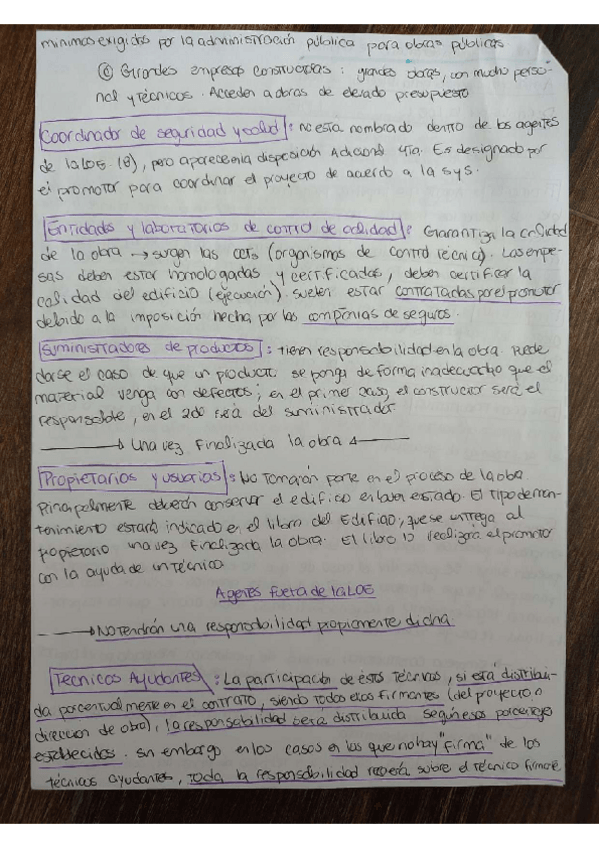 minimos exigidos por la administración pública para obras públicas
© Grandes empresas constructoras: grandes obras, con mucho perso-
nal y técnicos. Acceden a obras de elevado presupuesto
Coordinador de seguridad y salud: no esta nombrado dentro de los agentes
de la LOE (8), pero aparece en la disposición Adicional 4ta. Es designado por
el promotor para coordinar el proyecto de acuerdo a la sys.
Entidades y laboratorios de control de calidad: Garantiza la calidad
de la obra → surgen las OCTs (organismos de control técnico). Las empre-
sas deben estar homologadas y certificadas, deben certificar la
calidad del edificio (ejecución). suelen estar contratadas por el promotor
debido a la imposición hecha por las compañías de seguros.
Suministradores de productos: tienen responsabilidad en la obra. Puede
darse el caso de que un producto se ponga de forma inadecuada o que el
material venga con defectos; en el primer caso, el constructor será el
responsable, en el 2do será del suministrador
→ Una vez finalizada la obra ←
Propietarios y usuarios: No tomarán parte en el proceso de la obra.
Principalmente deberán conservar el edificio en buen estado. El tipo de man-
tenimiento estará indicado en el libro del Edificio, que se entrega al
propietario una vez finalizada la obra. El libro lo realizará el promotor
con la ayuda de un técnico
Agentes fuera de la LOE
→ No tendrán una responsabilidad propiamente dicha
Técnicos Ayudantes: La participación de éstos técnicos, si está distribui-
da porcentualmente en el contrato, siendo todos ellos firmantes (del proyecto o
dirección de obra), la responsabilidad será distribuida según esos porcentajes
establecidos. Sin embargo en los casos en los que no hay "firma" de los
técnicos ayudantes, toda la responsabilidad recaerá sobre el técnico firmante